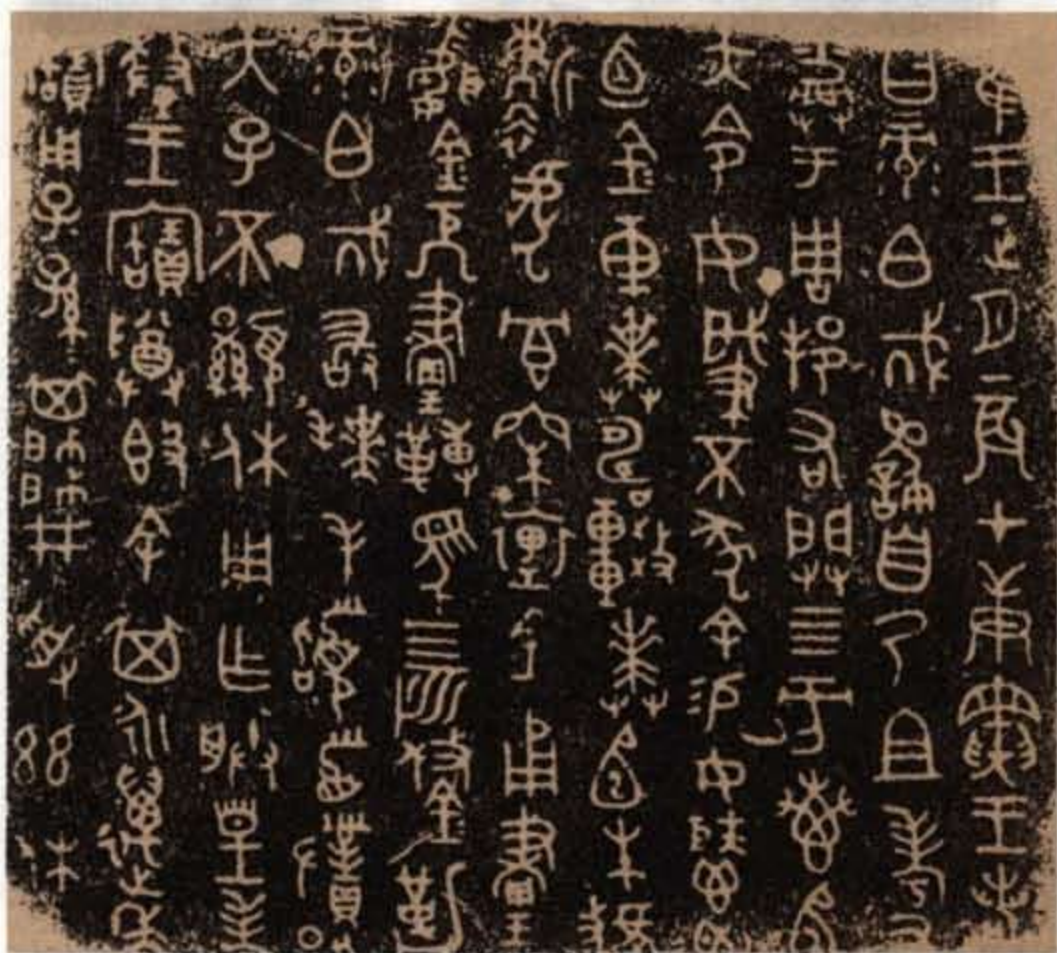 隹王正月辰才庚寅王若
曰彔白𢦏繇自乃且考又
于周邦右闢四方叀
天令女肇不墜余易女秬鬯
卣金車朱虢
虎冟裏金甬畫
金厄畫轉馬四匹鋚勒
彔白𢦏敢拜手首對揚
天子不顯休用乍朕皇考
釐王寶尊余其永萬年寶
用子子孫孫其帥井受茲休